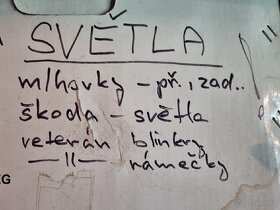 SVĚTLA
mlhovky - př., zad..
škoda - světla
veterán blinkry
—11— rámečky